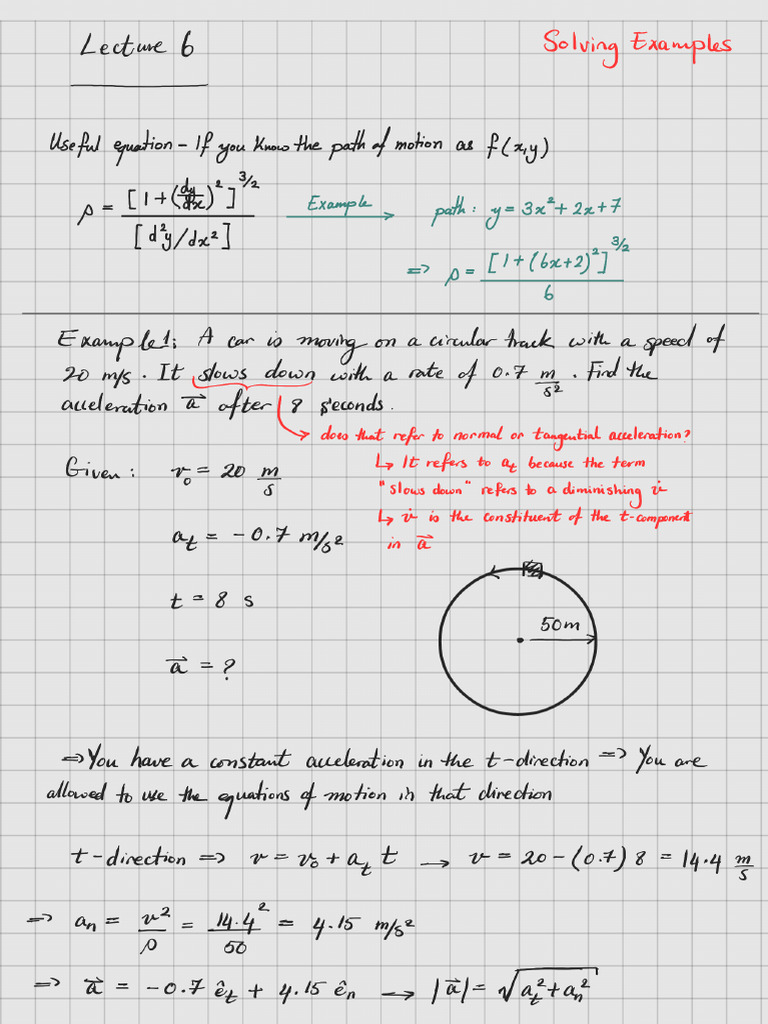 Lecture 6
Solving Examples
Useful equation - If you know the path of motion as f(x,y)
ρ = [1+(dy/dx)²]^3/2 / [d²y/dx²]
Example
path: y = 3x² + 2x + 7
=> ρ = [1+(6x+2)²]^3/2 / 6
Example 1: A car is moving on a circular track with a speed of
20 m/s. It slows down with a rate of 0.7 m/s². Find the
acceleration a⃗ after 8 seconds.
does that refer to normal or tangential acceleration?
↳ It refers to at because the term
"slows down" refers to a diminishing v̇
↳ v̇ is the constituent of the t-component
in a⃗
Given: v₀ = 20 m/s
at = -0.7 m/s²
t = 8 s
a⃗ = ?
50m
=> You have a constant acceleration in the t-direction => You are
allowed to use the equations of motion in that direction
t-direction => v = v₀ + at t → v = 20 - (0.7) 8 = 14.4 m/s
=> an = v²/ρ = 14.4²/50 = 4.15 m/s²
=> a⃗ = -0.7 êt + 4.15 ên → |a⃗| = √(at² + an²)